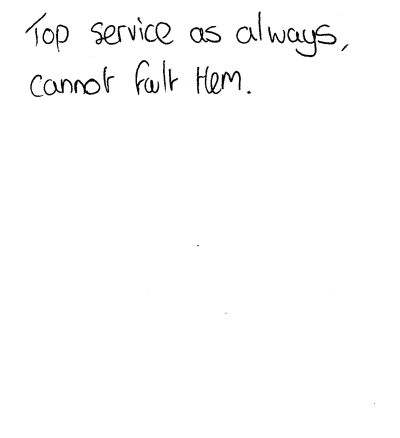 Top service as always,
cannot fault them.